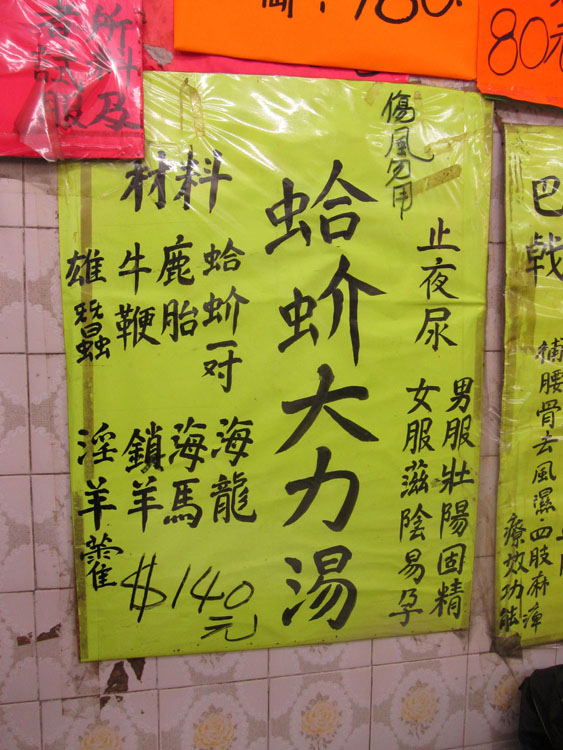 所料及
者試服
80元
傷風勿用
止夜尿
男服壯陽固精
女服滋陰易孕
蛤蚧大力湯
材料
蛤蚧一对
海龍
鹿胎
海馬
牛鞭
鎖羊
雄蠶
淫羊藿
$140元
巴戟
補腰骨去風濕四肢麻痺
療效功能